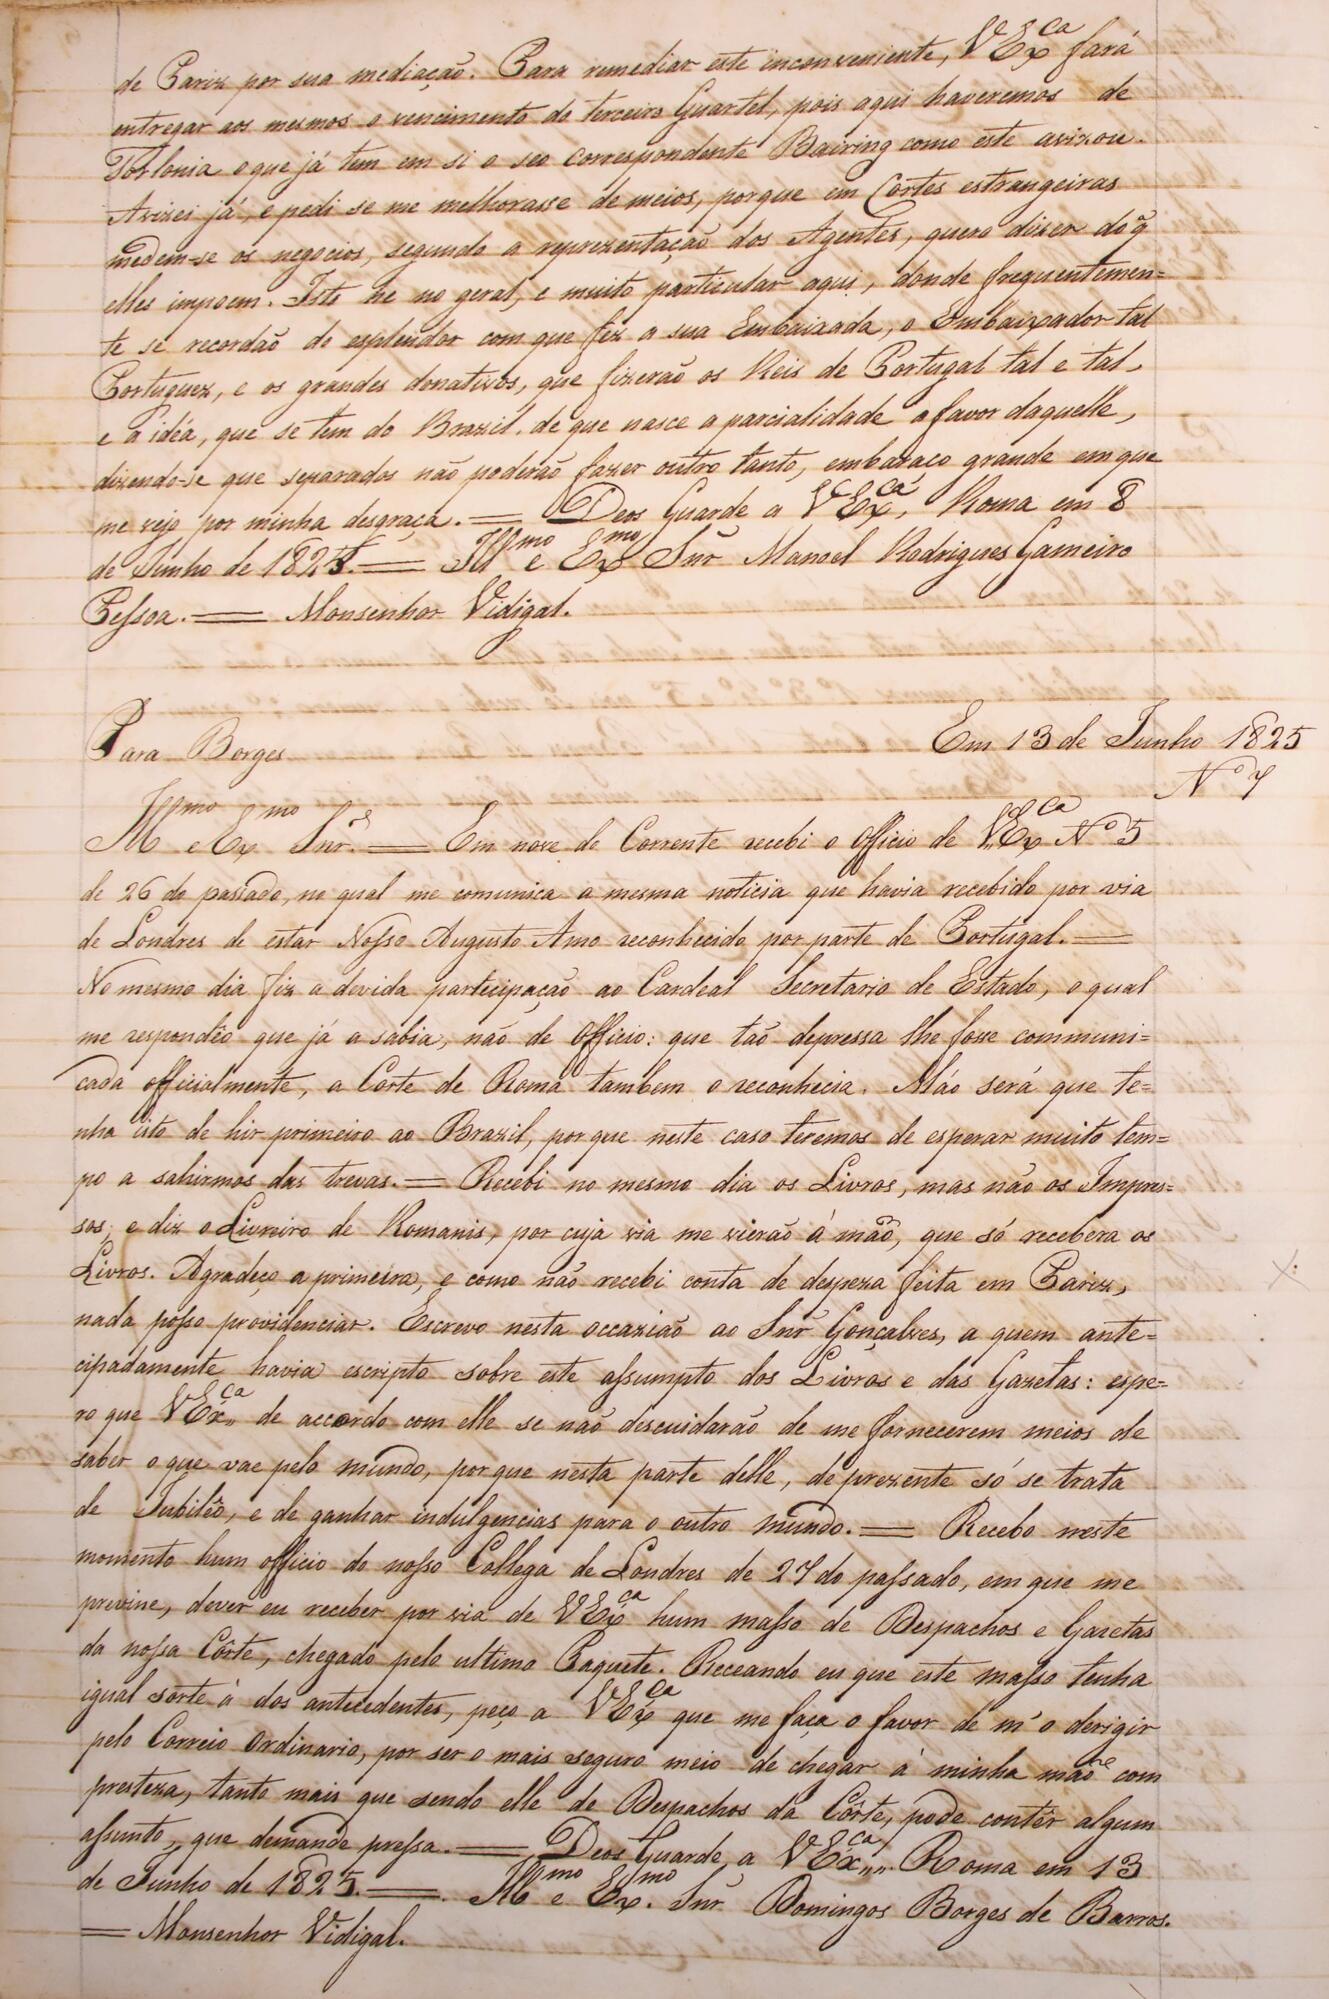 de Pariz por sua mediação. Para remediar este inconveniente, VEx.ca fará
entregar aos mesmos o vencimento do terceiro Quartel, pois aqui haveremos de
Torlonia o que já tem em si o seo correspondente Bairing como este avizou.
Avizei já, e pedi se me melhorasse de meios, porque em Cortes estrangeiras
medem-se os negocios, segundo a reprezentação dos Agentes, quero dizer do q̃
elles impoem. Isto he no geral, e muito particular aqui, donde frequentemen=
te se recordão do esplendor com que fez a sua Embaixada, o Embaixador tal
Portuguez, e os grandes donativos, que fizerão os Reis de Portugal tal e tal,
e a idéa, que se tem do Brazil. de que nasce a parcialidade a favor daquelle,
dizendo-se que separados não poderão fazer outro tanto, embaraço grande em que
me vejo por minha desgraça. = Deos Guarde a VEx.ca, Roma em 8
de Junho de 1825. = Ill.mo e Ex.mo Snr̃ Manoel Rodrigues Gameiro
Pessoa. = Monsenhor Vidigal.
Para Borges Em 13 de Junho 1825
Nº 7
Ill.mo e Ex.mo Snr. = Em nove do Corrente recebi o Officio de VEx.ca Nº 5
de 26 do passado, no qual me comunica a mesma noticia que havia recebido por via
de Londres de estar Nosso Augusto Amo reconhecido por parte de Portugal. =
No mesmo dia fiz a devida participação ao Cardeal Secretario de Estado, o qual
me respondêo que já a sabia, não de Officio: que tão depressa lhe fosse communi=
cada officialmente, a Corte de Roma tambem o reconhecia. Máo será que te=
nha isto de hir primeiro ao Brazil, porque neste caso teremos de esperar muito tem=
po a sahirmos das trevas. = Recebi no mesmo dia os Livros, mas não os Impres=
sos, e diz o Livreiro de Romanis, por cuja via me vierão á mão, que só recebera os
Livros. Agradeço a primeira, e como não recebi conta de despeza feita em Pariz,
nada posso providenciar. Escrevo nesta occazião ao Snr̃ Gonçalves, a quem ante=
cipadamente havia escripto sobre este assumpto dos Livros e das Gazetas: espe=
ro que VEx.ca de accordo com elle se não descuidarão de me fornecerem meios de
saber o que vae pelo mundo, porque nesta parte delle, de prezente só se trata
de Jubilêo, e de ganhar indulgencias para o outro mundo. = Recebo neste
momento hum officio do nosso Collega de Londres de 27 do passado, em que me
previne, dever eu receber por via de VEx.ca hum masso de Despachos e Gazetas
da nossa Côrte, chegado pelo ultimo Paquete. Receando eu que este masso tenha
igual sorte á dos antecedentes, peço a VEx.ca que me faça o favor de m'o derigir
pelo Correio Ordinario, por ser o mais seguro meio de chegar á minha mão com
presteza, tanto mais que sendo elle de Despachos da Côrte, pode contêr algum
assunto, que demande pressa. = Deos Guarde a VEx.ca Roma em 13
de Junho de 1825. = Ill.mo e Ex.mo Snr̃ Domingos Borges de Barros.
= Monsenhor Vidigal.